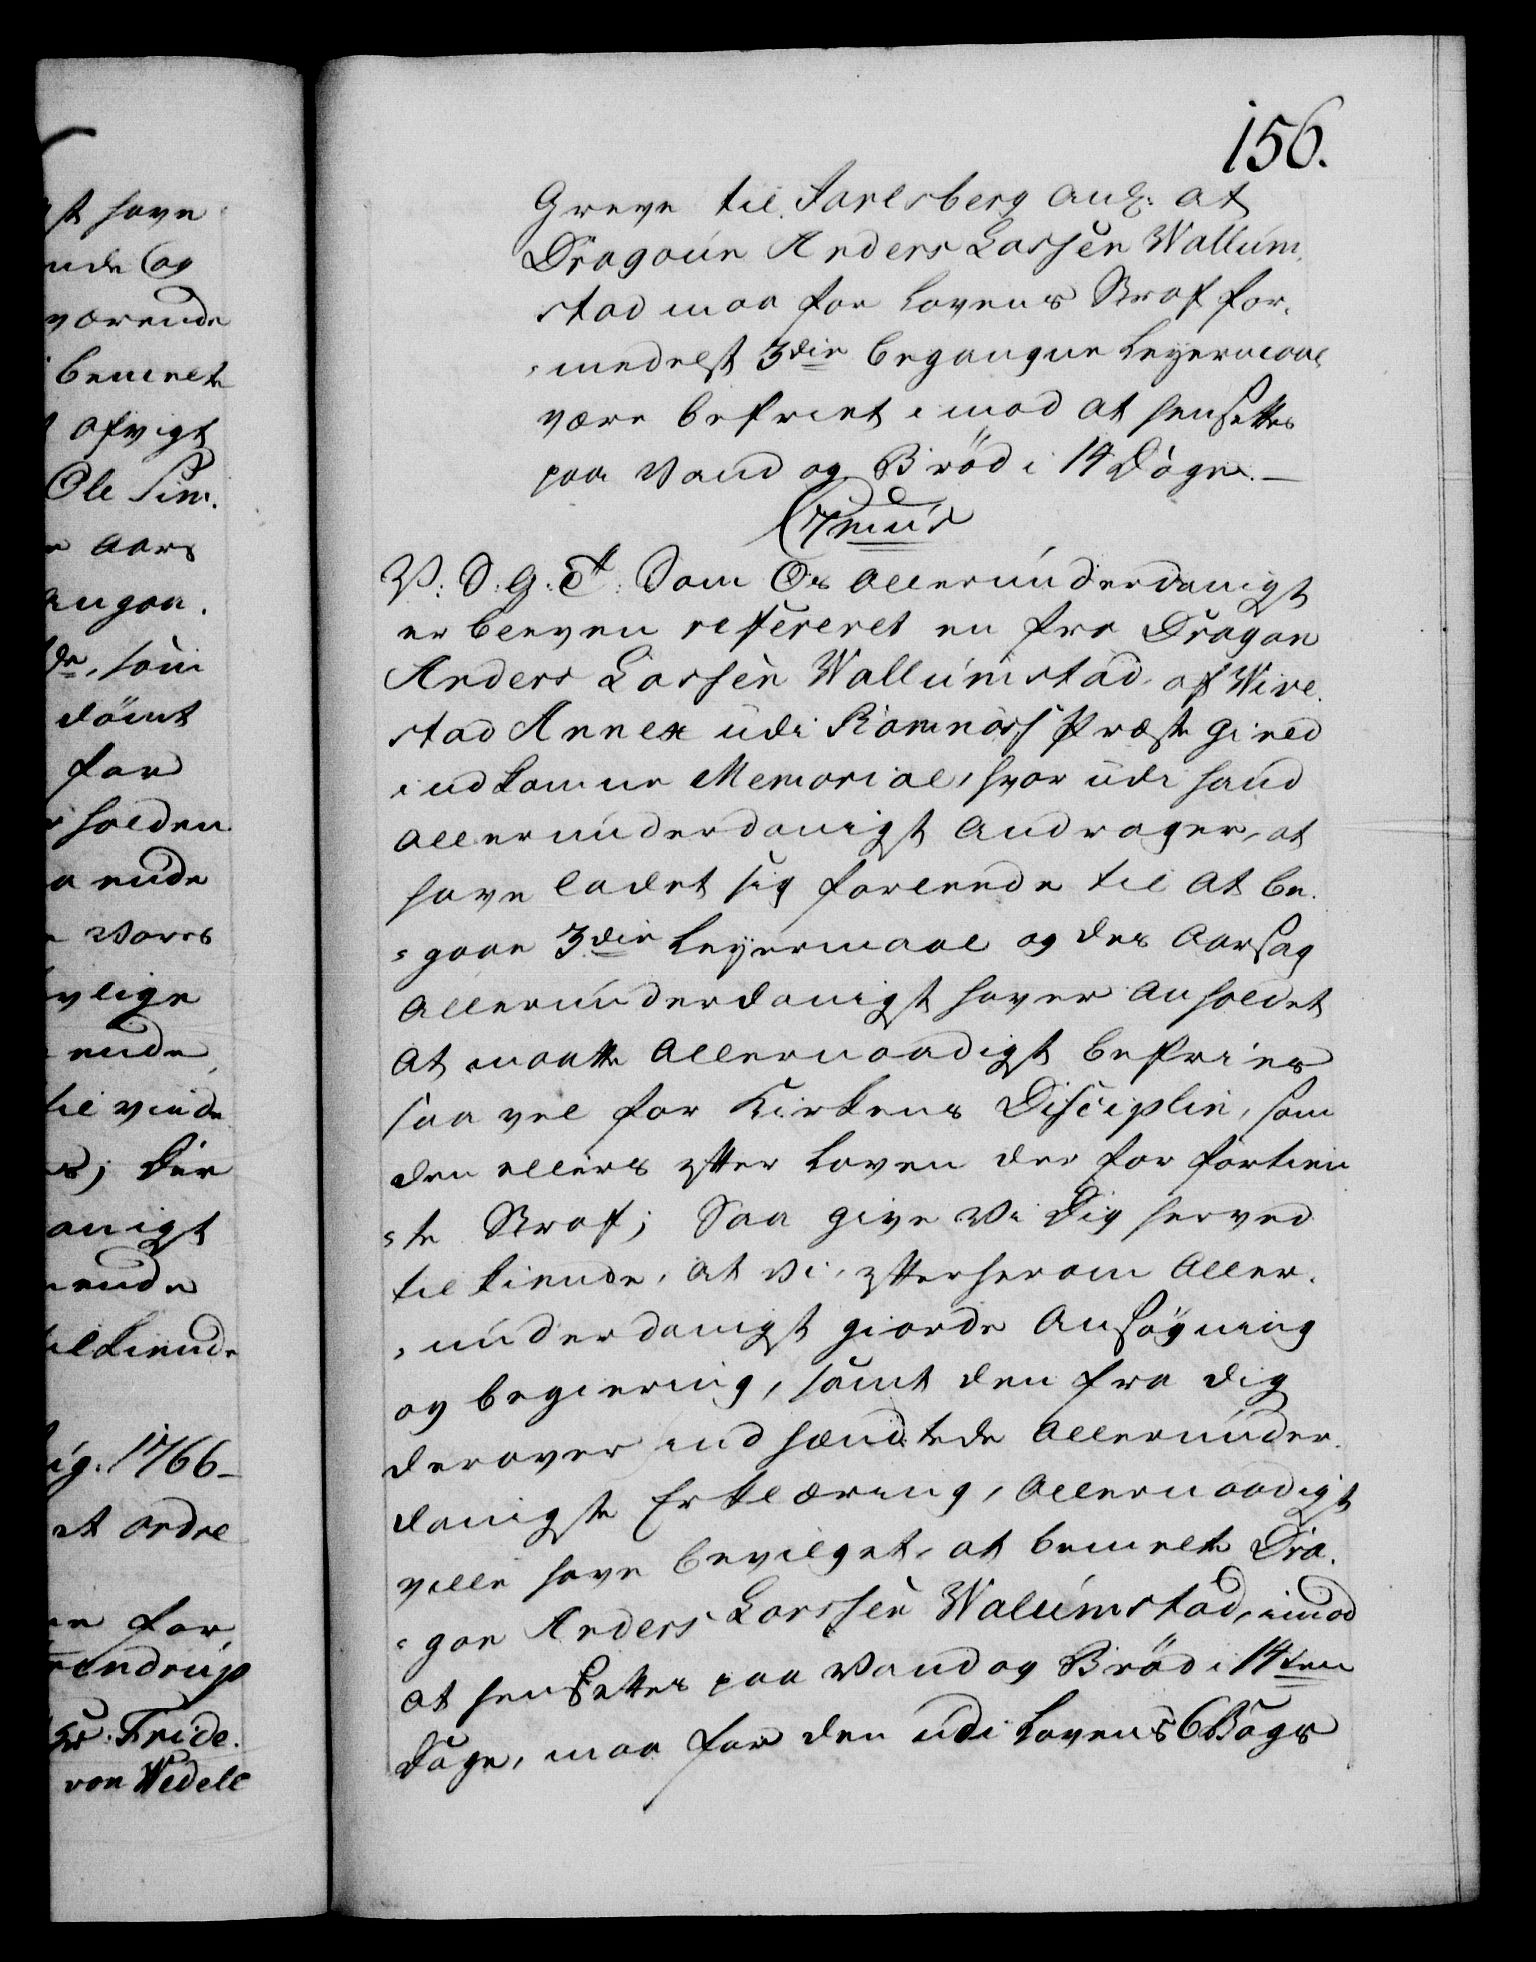 156.
Greve til Jarlsberg ang: at
Dragoun Anders Larsen Wallum-
stad maa for Lovens Straf for-
-medelst 3die begangne Leyermaal
være befriet imod at hensettes
paa Vand og Brød i 14 Dage. —
V. D. G. T. Som Os allerunderdanigst
er bleven refereret en fra Dragon
Anders Larsen Wallumstad af Wive-
stad Annex udi Ramnæss Præste Gield
indkomne Memorial, hvorudi hand
allerunderdanigst andrager, at
have ladet sig forleede til at be-
-gaae 3die Leyermaal og des Aarsag
allerunderdanigst haver anholdet
at maatte allernaadigst befries
saa vel for Kirkens Disciplin, som
den ellers efter Loven derfor fortien
-te Straf; Saa give Vi Dig herved
tilkiende, at Vi, efter herom aller-
-underdanigst giorde Ansøgning
og begiering, samt den fra dig
derover indsendtede allerunder-
danigste Erklæring, allernaadigst
ville have bevilget, at bemelte Dra-
-gon Anders Larsen Walumstad, imod
at hensettes paa Vand og Brød i 14ten
Dage, maa for den udi Lovens 6 Bogs
st have
ende og
værende
bemelte
afvigt
Ole Sim-
Aars
angaa-
de, som
dømt
for
holden
ende
Vores
vlige
ende
til vinde
; Din
anigst
ende
ilkiende
ug. 1766 —
et ordre
for
rendrup
Hr. Fride-
von Wedell